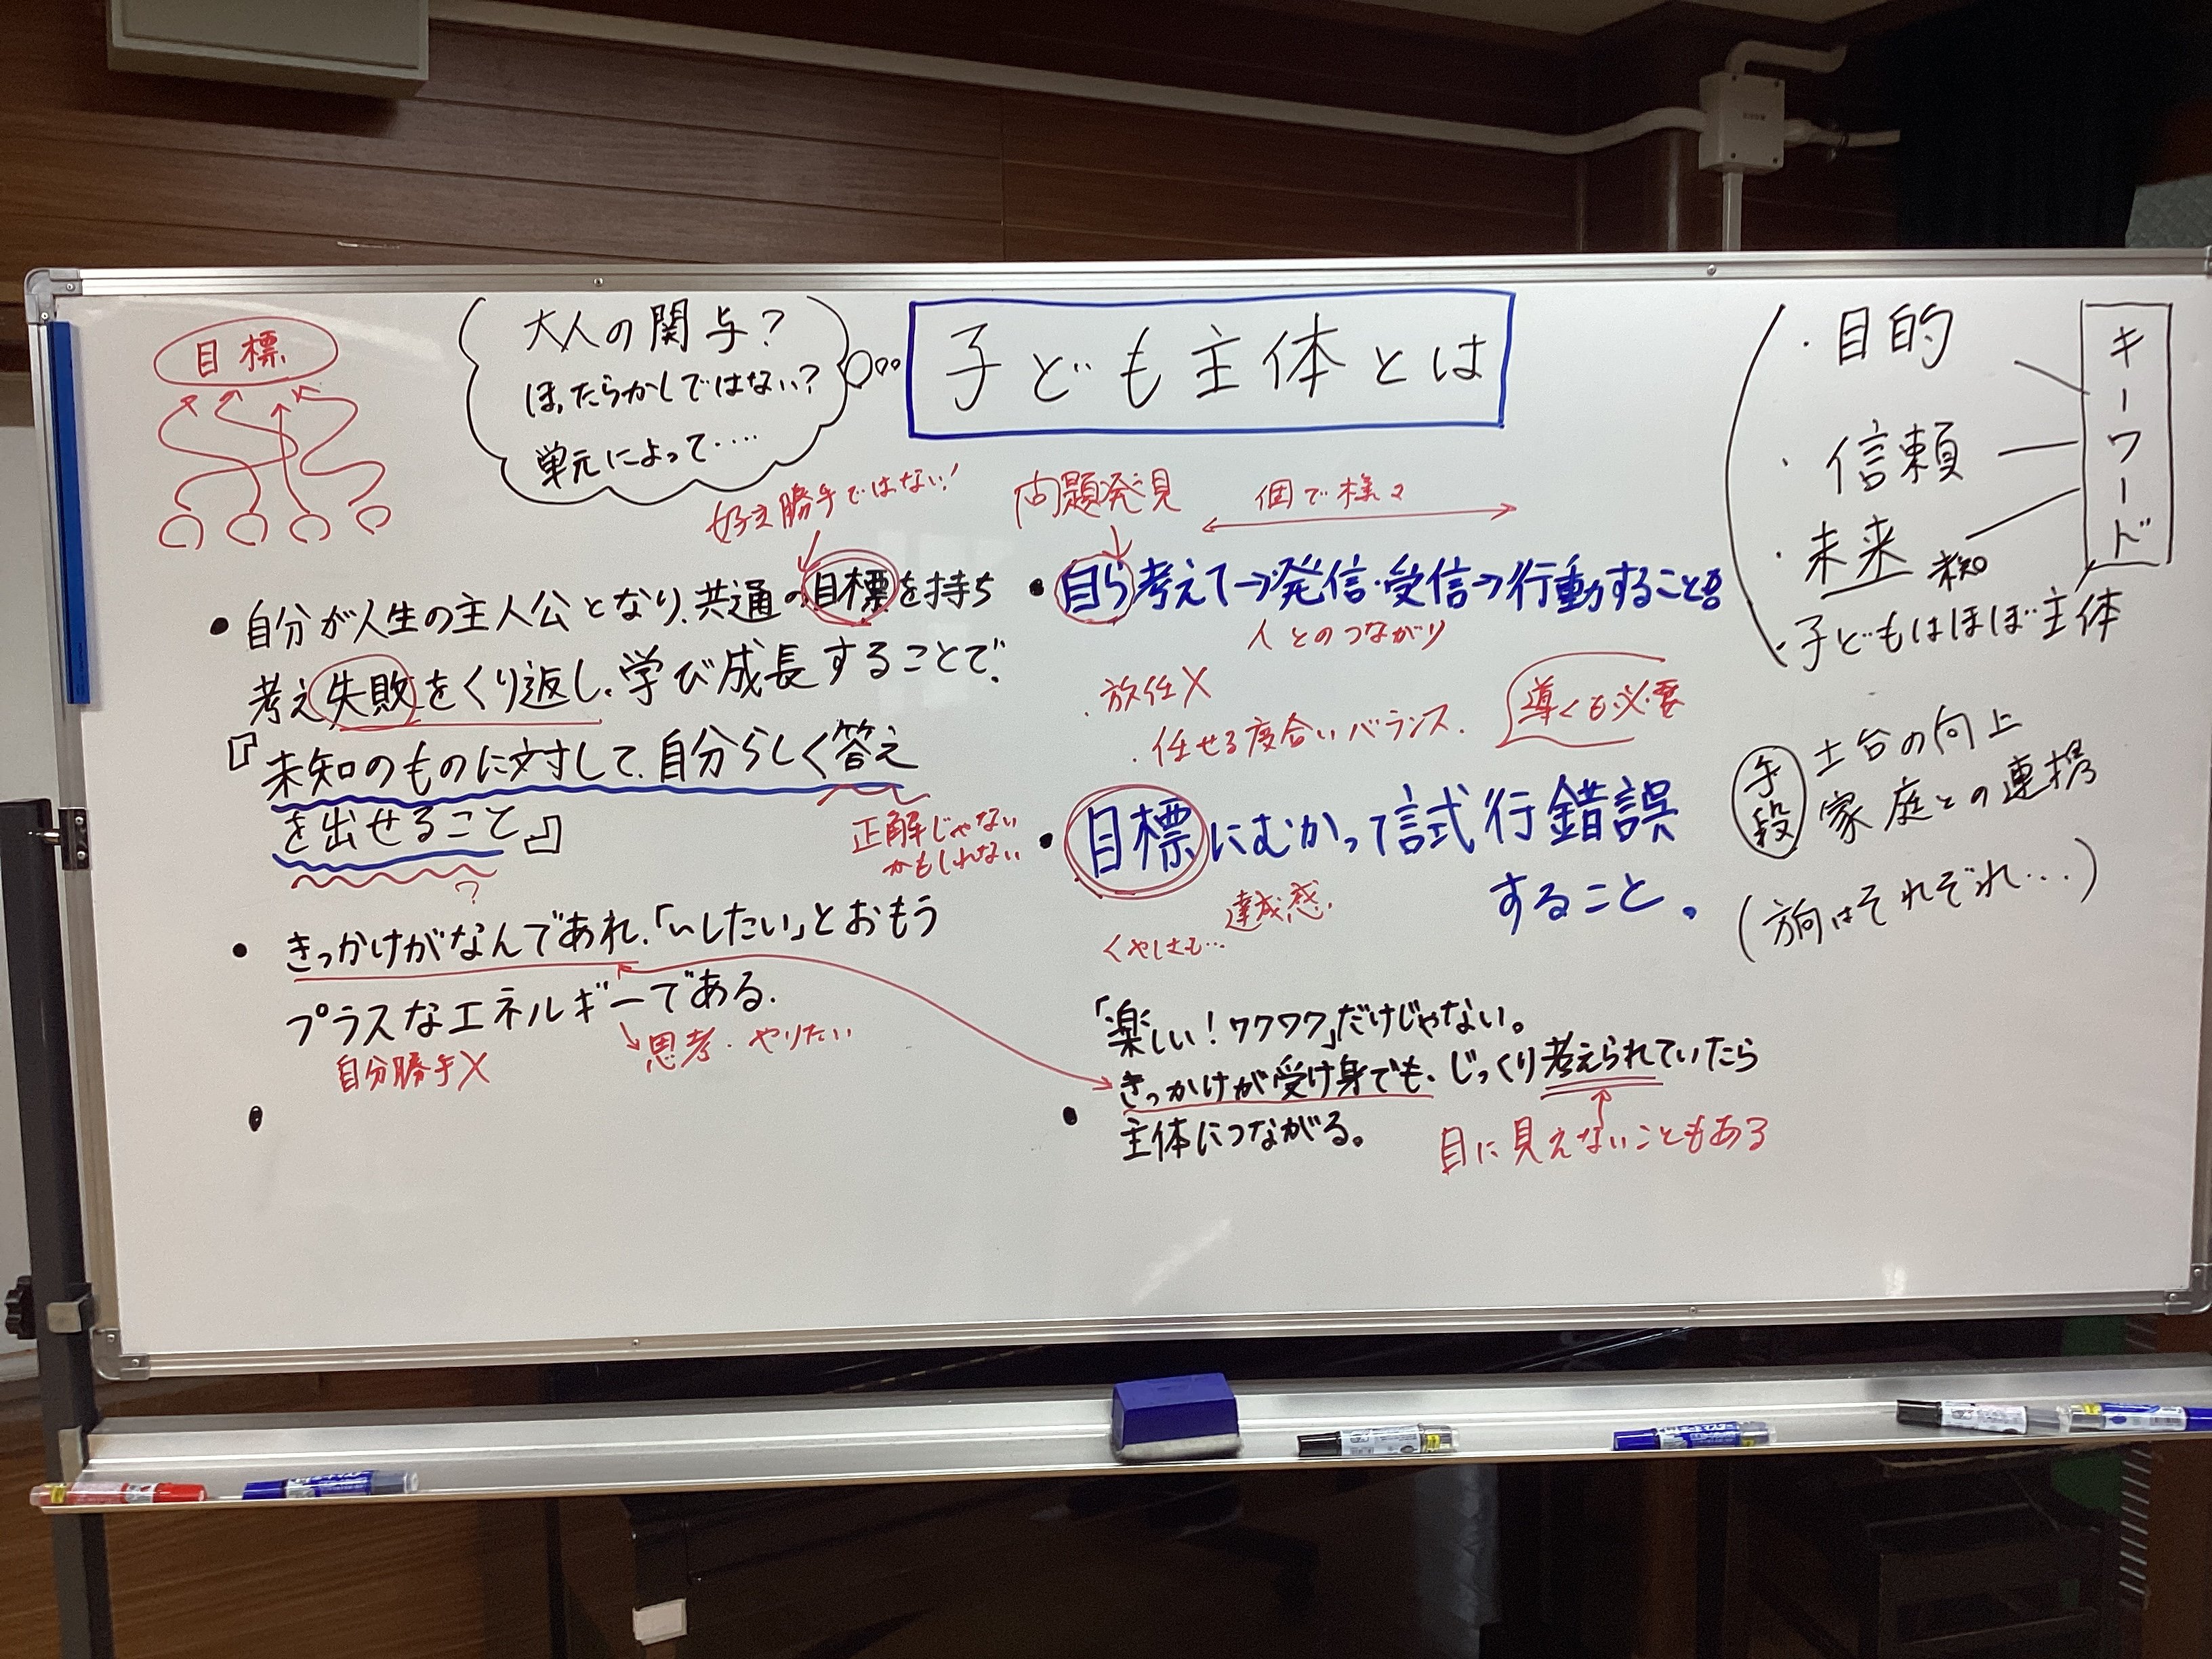 目標
大人の関与?
ほったらかしではない?
単元によって‥‥
子ども主体とは
・目的
・信頼
・未来 未知
・子どもはほぼ主体
キーワード
好き勝手ではない!
問題発見
個で様々
●自分が人生の主人公となり、共通の目標を持ち
考え失敗をくり返し、学び成長することで、
『未知のものに対して、自分らしく答え
を出せること』
正解じゃない
かもしれない
?
●きっかけがなんであれ、「〜したい」とおもう
プラスなエネルギーである.
自分勝手×
思考・やりたい
●
●自ら考えて→発信・受信→行動すること
人とのつながり
・放任×
・任せる度合いバランス.
導くも必要
●目標にむかって試行錯誤
すること。
達成感.
くやしさも…
「楽しい!ワクワク」だけじゃない。
きっかけが受け身でも、じっくり考えられていたら
●主体につながる。
目に見えないこともある
手段
土台の向上
家庭との連携
(方向はそれぞれ…)